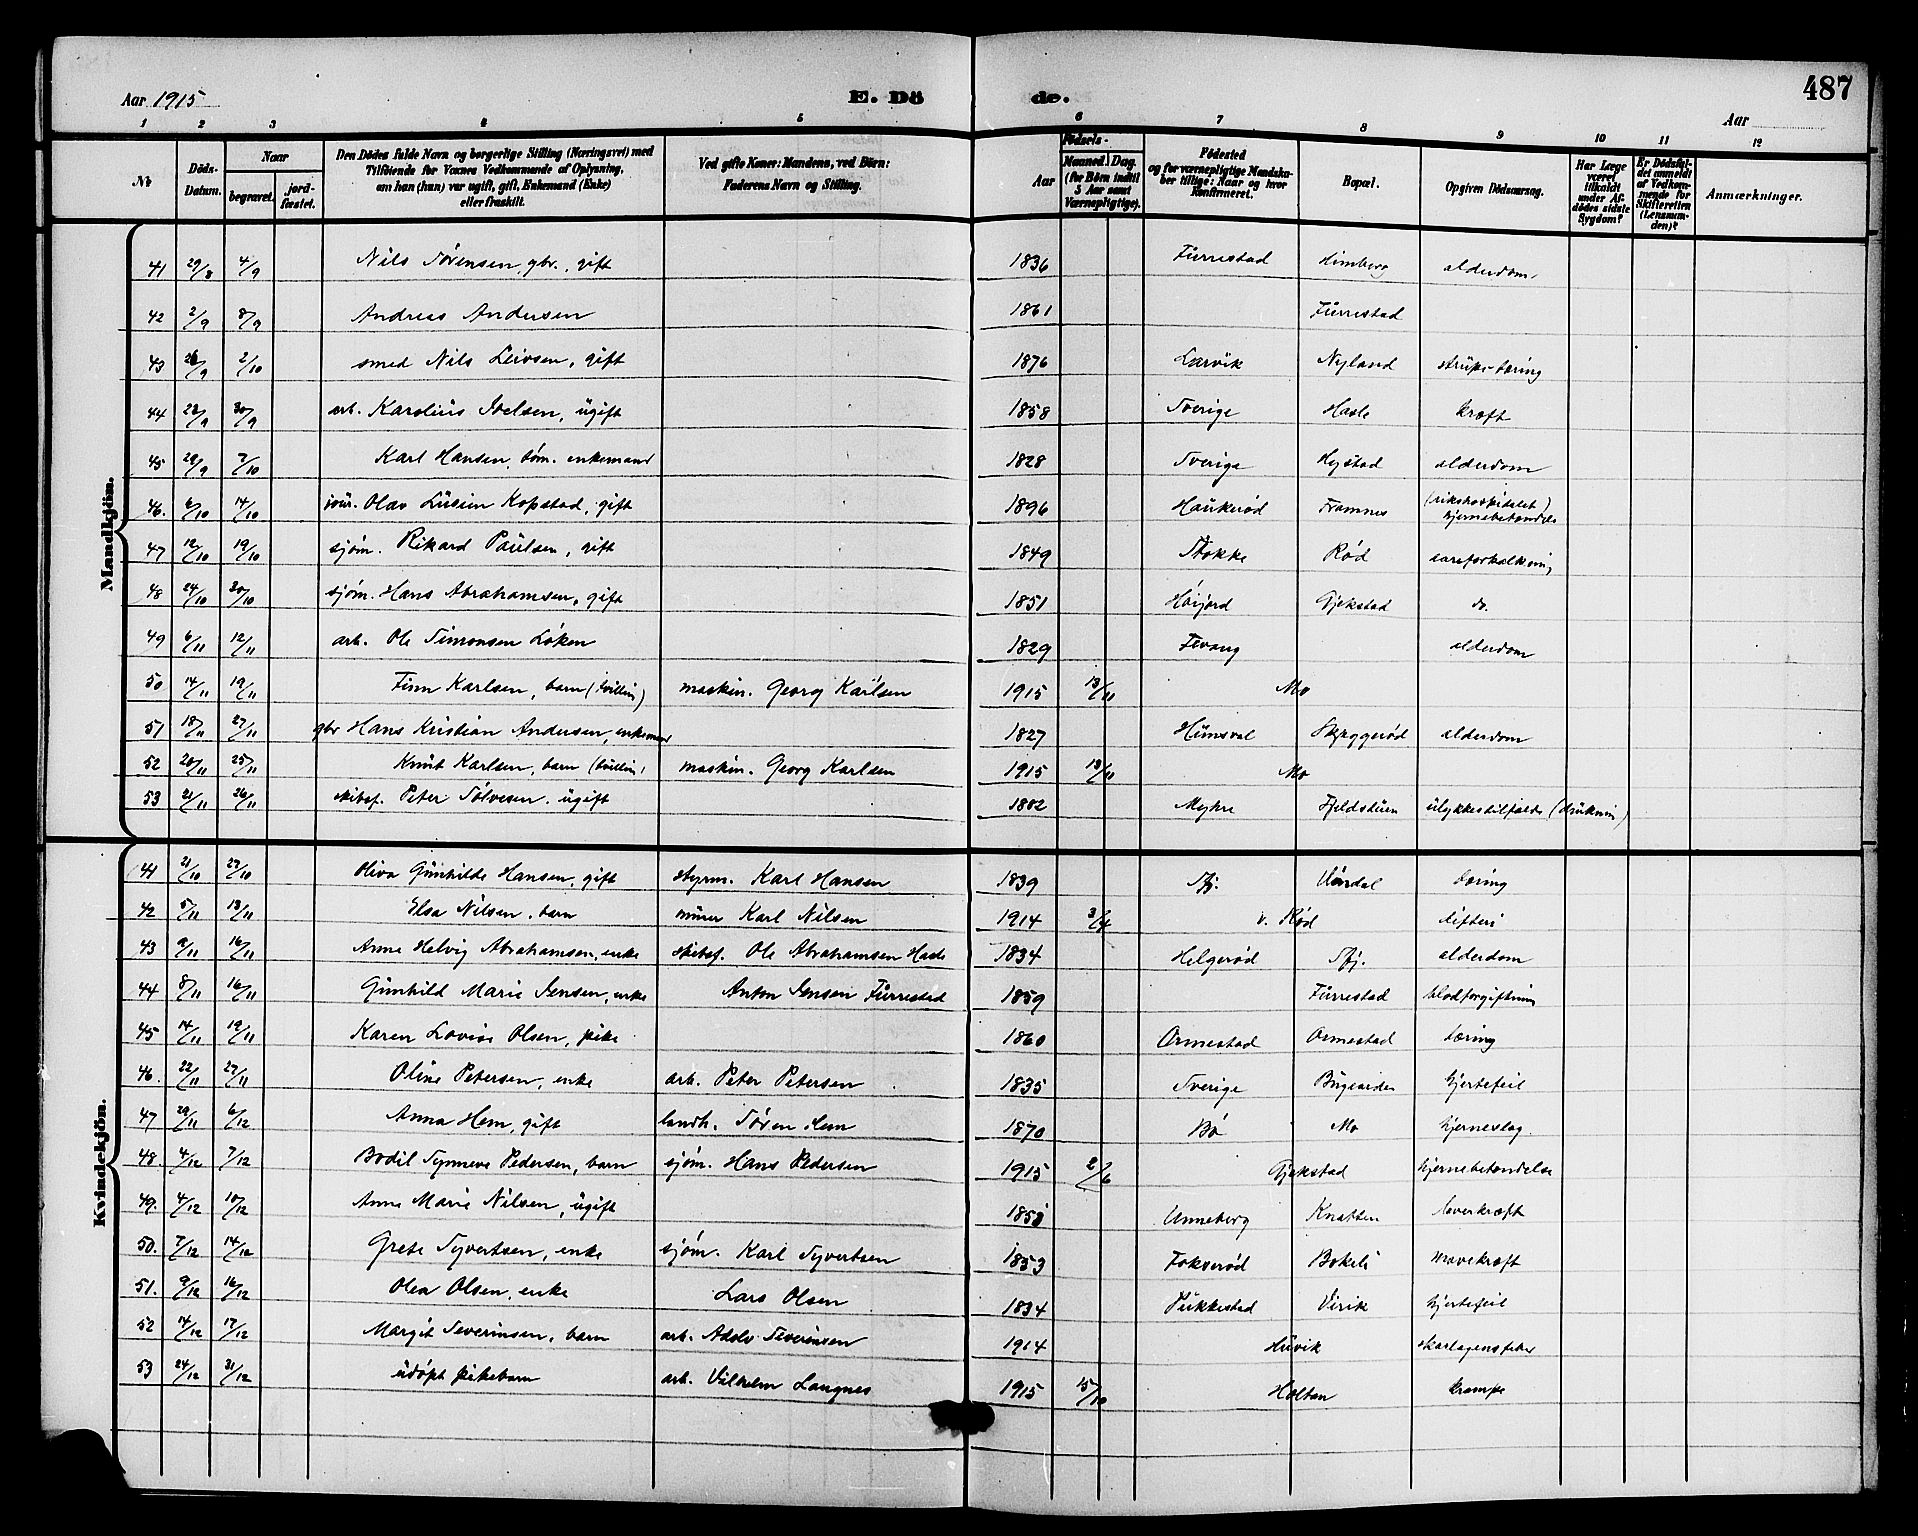 487
Aar 1915
E. Dö de.
Aar
1 2 3 4 5 6 7 8 9 10 11 12
No
Döds-Datum.
Naar begravet. jord-fæstet.
Den Dödes fulde Navn og borgerlige Stilling (Næringsvei) med Tilföiende for Voxnes Vedkommende af Oplysning, om han (hun) var ugift, gift, Enkemand (Enke) eller fraskilt.
Ved gifte Koner: Mandens, ved Börn: Faderens Navn og Stilling.
Födsels-
Aar
Maaned. Dag. (for Börn indtil 5 Aar samt Værnepligtige).
Födested og for værnepligtige Mandskaber tillige: Naar og hvor Konfirmeret.
Bopæl.
Opgiven Dödsaarsag.
Har Læge været tilkaldt under Afdödes sidste Sygdom?
Er Dödsfaldet anmeldt af Vedkommende for Skifteretten (Lensmanden)?
Anmærkninger.
Mandkjön.
41 29/8 4/9 Nils Sørensen, gbr., gift 1836 Furrestad Himberg alderdom
42 2/9 8/9 Andreas Andersen 1861 Furrestad
43 26/9 2/10 smed Nils Leivsen, gift 1876 Larvik Nyland strupe-tæring
44 23/9 30/9 arb. Karolius Joelsen, ugift 1858 Sverige Hasle kræft
45 29/9 7/10 Karl Hansen, tøm. enkemand 1828 Sverige Hystad alderdom
46. 6/10 14/10 jour. Olav Lusien Kopstad, gift 1896 Haukerød Framnes (rikshospitalet) hjernebetændelse
47 12/10 19/10 sjøm. Rikard Paulsen, gift 1849 Stokke Rød aareforkalkning
48 24/10 30/10 sjøm. Hans Abrahamsen, gift 1851 Høijord Gjekstad do.
49 6/11 12/11 arb. Ole Simonsen Løken 1829 Fevang alderdom
50 14/11 19/11 Finn Karlsen, barn (tvilling) maskin. Georg Karlsen 1915 13/11 Mo
51 18/11 27/11 gbr Hans Kristian Andersen, enkemand 1827 Hunsval Skyggerød alderdom
52 20/11 25/11 Knut Karlsen, barn (tvilling) maskin. Georg Karlsen 1915 13/11 Mo
53 21/11 26/11 skibsf. Peter Sølvesen. ugift 1882 Myhre Fjeldstuen ulykkestilfælde (drukning)
Kvindekjön.
41 21/10 27/10 Oliva Gunhilde Hansen, gift styrm. Karl Hansen 1839 Sfj. Unrdal tæring
42 5/11 13/11 Elsa Nilsen. barn murer Karl Nilsen 1914 3/4 v. Rød difteri
43 9/11 16/11 Anne Helvig Abrahamsen, enke skibsf. Ole Abrahamsen Hasle 1834 Helgerød Sfj. alderdom
44 8/11 16/11 Gunhild Marie Jensen, enke Anton Jensen Furrestad 1859 Furrestad blodforgiftning
45 14/11 19/11 Karen Lovise Olsen, pike 1860 Ormestad Ormestad tæring
46. 22/11 27/11 Oline Petersen, enke arb. Peter Petersen 1835 Sverige Bugaarden hjertefeil
47 29/11 6/12 Anna Hem, gift landh. Søren Hem 1870 Bø Mo hjerneslag
48. 4/12 7/12 Bodil Synneve Pedersen, barn sjøm. Hans Pedersen 1915 2/6 Gjekstad hjernebetændelse
49. 4/12 10/12 Anne Marie Nilsen, ugift Unneberg Knatten leverkræft
50. 7/12 14/12 Grete Syvertsen, enke sjøm. Karl Syvertsen 1853 Fokserød Bokeli mavekræft
51. 9/12 16/12 Olea Olsen, enke Lars Olsen 1834 Pukkestad Virik hjertefeil
52 14/12 17/12 Margit Severinsen, barn arb. Adolv Severinsen 1914 Huvik skarlagensfeber
53 24/12 31/12 udøpt pikebarn arb. Vilhelm Langnes 1915 15/10 Holtan krampe